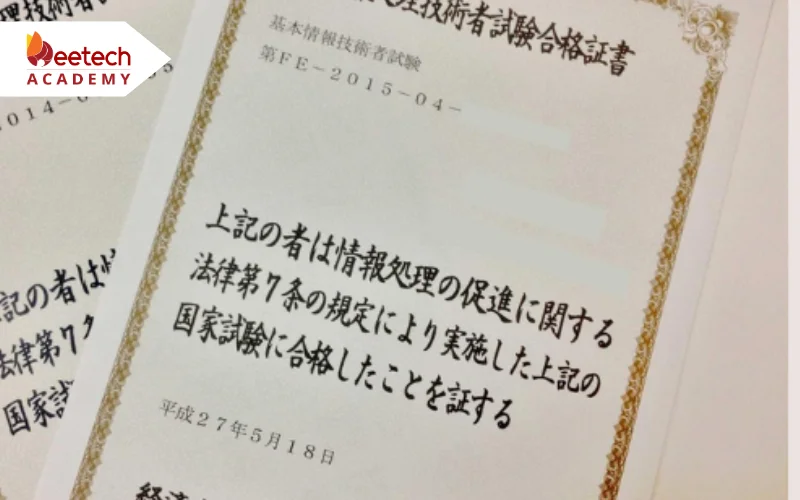 Beetech
ACADEMY
理技術者試験合格証書
基本情報技術者試験
第FE-2015-04-
上記の者は情報処理の促進に関する
法律第7条の規定により実施した上記の
国家試験に合格したことを証する
平成27年5月18日
経済
理技術者
014-
記の者は
法律第7
国家試